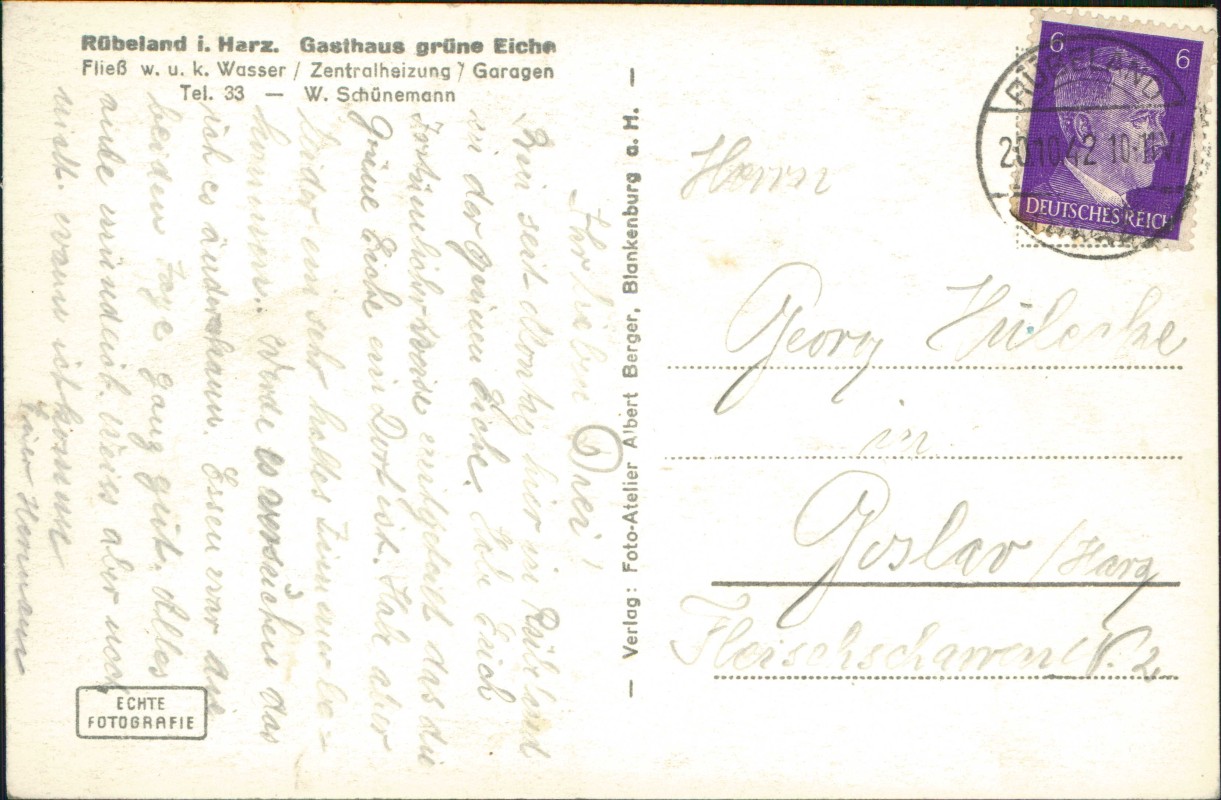 Rübeland i. Harz. Gasthaus grüne Eiche
Fließ w. u. k. Wasser / Zentralheizung / Garagen
Tel. 33 — W. Schünemann
Ihr lieben Drei!
Bin seit Montag hier in Rübeland
in der grünen Eiche. Habe Euch
irrtümlicherweise mitgeteilt das die
Grüne Eiche ein Dorf ist. Hab aber
leider ein sehr kaltes Zimmer be-
kommen. Werde es versuchen das
ich es ändern kann. Essen war die
beiden Tage ganz gut. Alles
andere mündlich. Weiss aber noch
nicht wann ich komme
Euer Hermann
ECHTE
FOTOGRAFIE
— Verlag: Foto-Atelier Albert Berger, Blankenburg a. H. —
6 6
DEUTSCHES REICH
RÜBELAND
20.10.42 10-11
Herrn
Georg Hülsche
in
Goslar /Harz
Fleischscharren 2